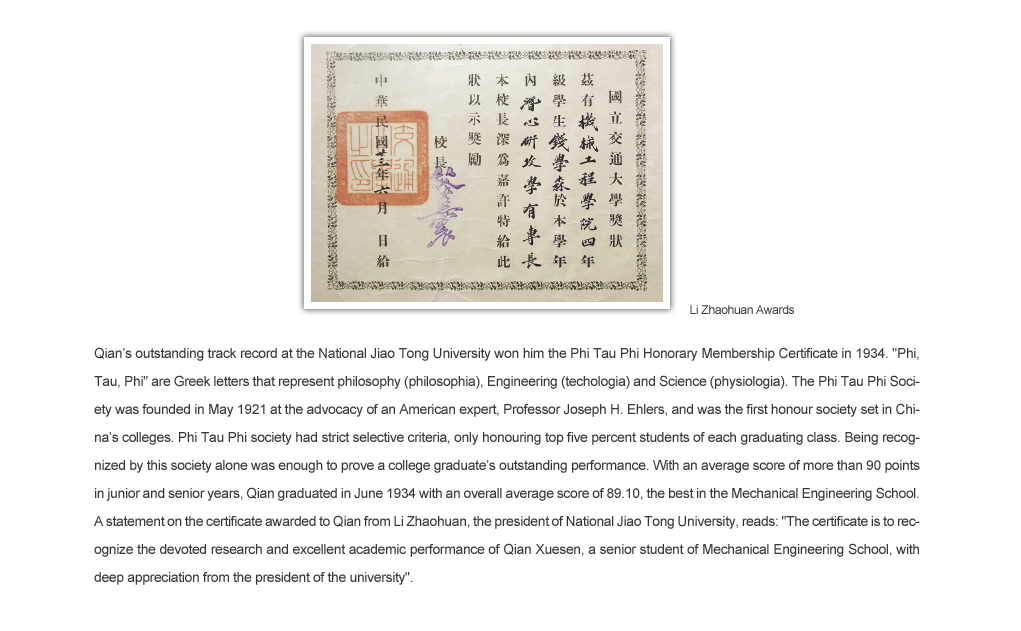 國立交通大學獎狀
茲有機械工程學院四年
級學生錢學森於本學年
內潛心研攻學有專長
本校長深為嘉許特給此
狀以示獎勵
校長
中華民國廿三年六月 日給
Li Zhaohuan Awards
Qian’s outstanding track record at the National Jiao Tong University won him the Phi Tau Phi Honorary Membership Certificate in 1934. "Phi,
Tau, Phi" are Greek letters that represent philosophy (philosophia), Engineering (techologia) and Science (physiologia). The Phi Tau Phi Soci-
ety was founded in May 1921 at the advocacy of an American expert, Professor Joseph H. Ehlers, and was the first honour society set in Chi-
na’s colleges. Phi Tau Phi society had strict selective criteria, only honouring top five percent students of each graduating class. Being recog-
nized by this society alone was enough to prove a college graduate’s outstanding performance. With an average score of more than 90 points
in junior and senior years, Qian graduated in June 1934 with an overall average score of 89.10, the best in the Mechanical Engineering School.
A statement on the certificate awarded to Qian from Li Zhaohuan, the president of National Jiao Tong University, reads: "The certificate is to rec-
ognize the devoted research and excellent academic performance of Qian Xuesen, a senior student of Mechanical Engineering School, with
deep appreciation from the president of the university".